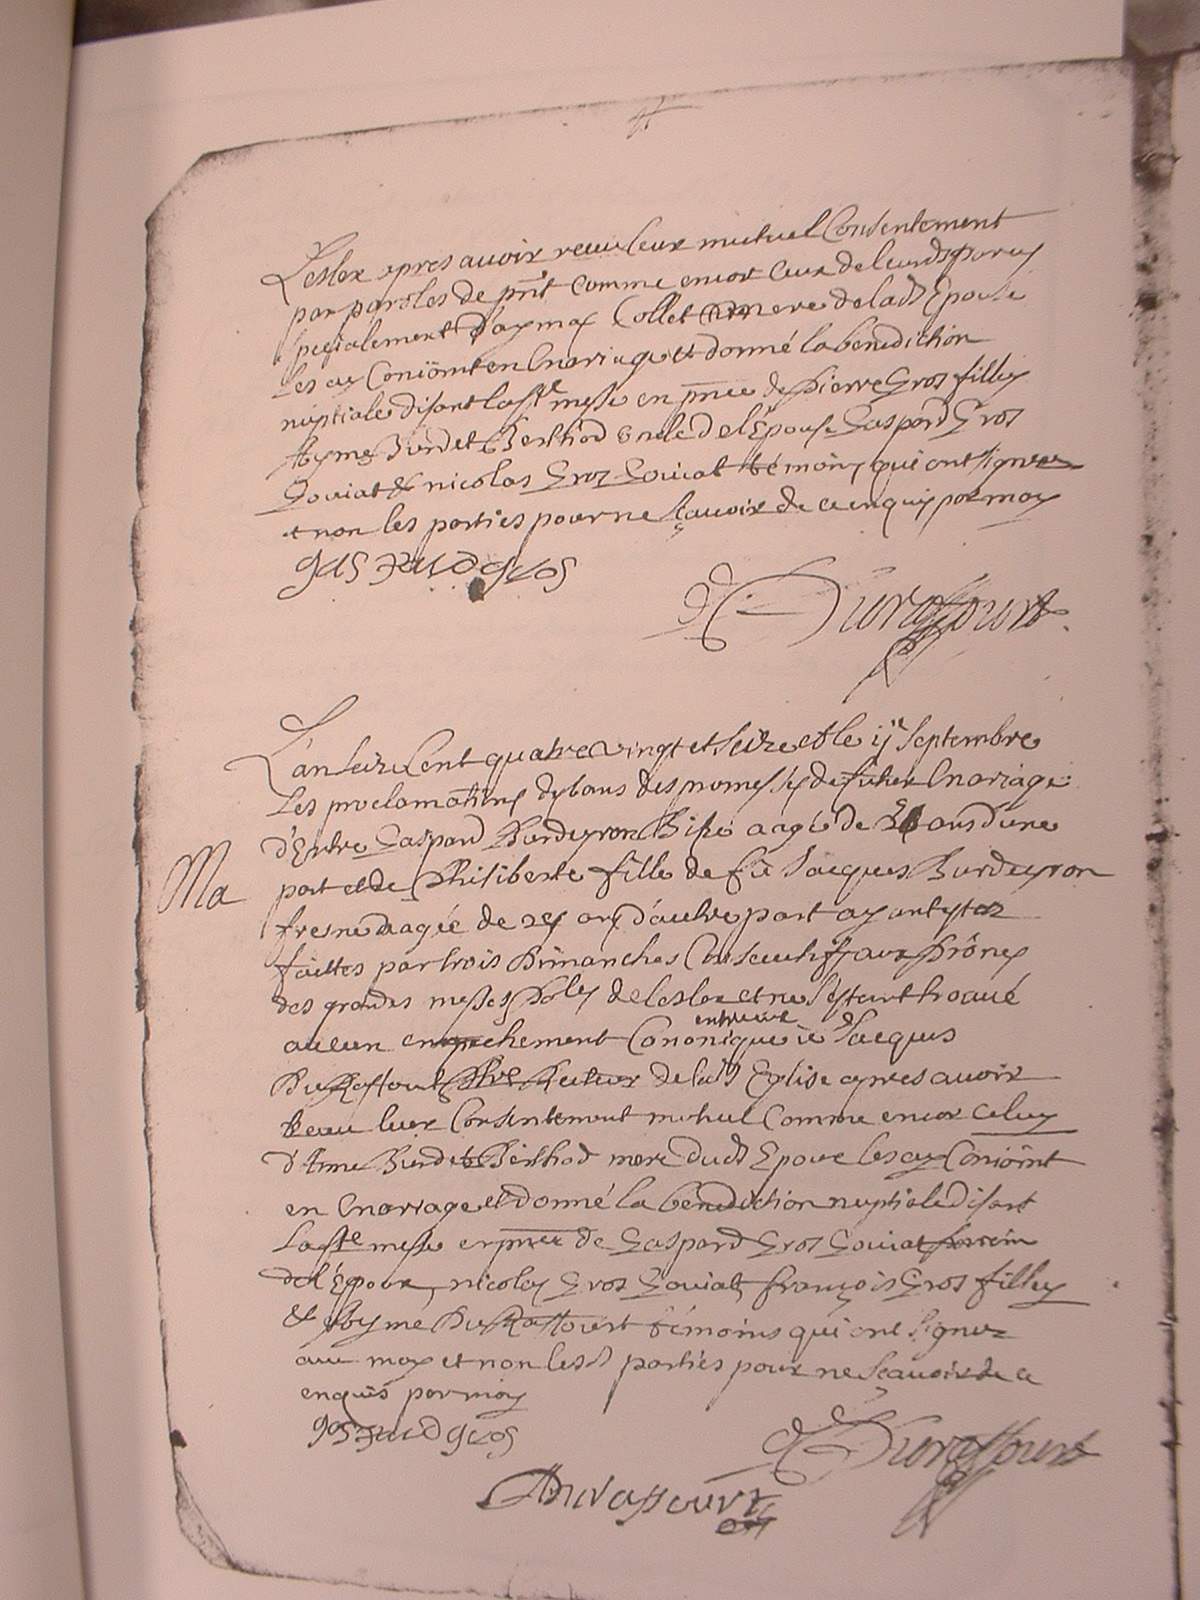 Lesler apres auoir receu leur mutuel Consentement
par paroles de pnt comme encor ceux de leurs parens
specialement Collet mere de lade Epouse
les ay Conioint en mariage et donné la benediction
nuptiale disant la ste messe en pnce de Pierre Gros filley
Ayme Burdet Berthod oncle de l'Epouse Gaspard Gros
Gouiat & nicolas Gros Gouiat témoins qui ont signez
et non les parties pour ne sçauoir de ce enquis par moy
gaspard gros
Durassourt
L'an seize Cent quatre vingt et seize et le Septembre
Les proclamations des bans des promesses de futur mariage
d'Entre Gaspard Burdeyron agé de ans d'une
part et de Philiberte fille de fû Jacques Burdeyron
agée de ans d'autre part ayant estez
faittes par trois Dimanches Consecutifs aux Prônes
des grandes messes de lesler et ne s'estant trouué
aucun empechement Canonique ie Jacques
entreuint
Durassourt Ptre Recteur de lade Eglise apres auoir
receu leur Consentement mutuel Comme encor celuy
d'Anne Burdet Berthod mere dud Epoux les ay Conioint
en mariage et donné la benediction nuptiale disant
La ste messe en pnce de Gaspard Gros Gouiat
de l'Epoux, nicolas Gros Gouiat, françois Gros filley
& Ayme Durassourt témoins qui ont signez
auec moy et non lesd parties pour ne Sçauoir de ce
enquis par moy
Ma
gaspard gros
Durassourt
ADurassourt